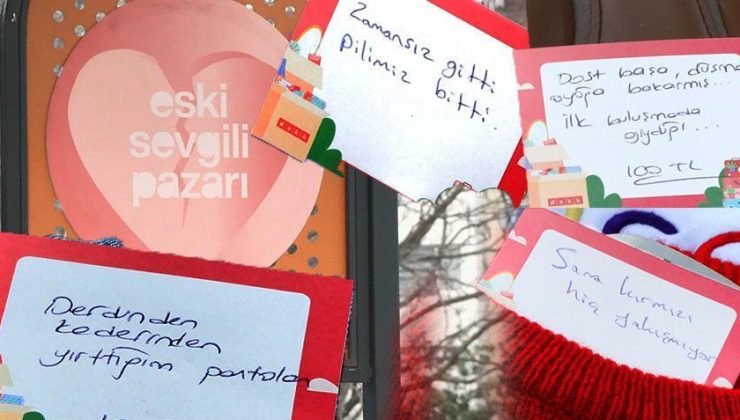 eski
sevgili
pazarı
Zamansız gitti
pilimiz bitti.
dekk
Dost başa, düşma
ayağa bakarmış...
ilk buluşmada
giydiği...
100 TL
dekk
Sana kırmızı
hiç yakışmıyor
Derdinden
kederinden
yırttığım pantolon